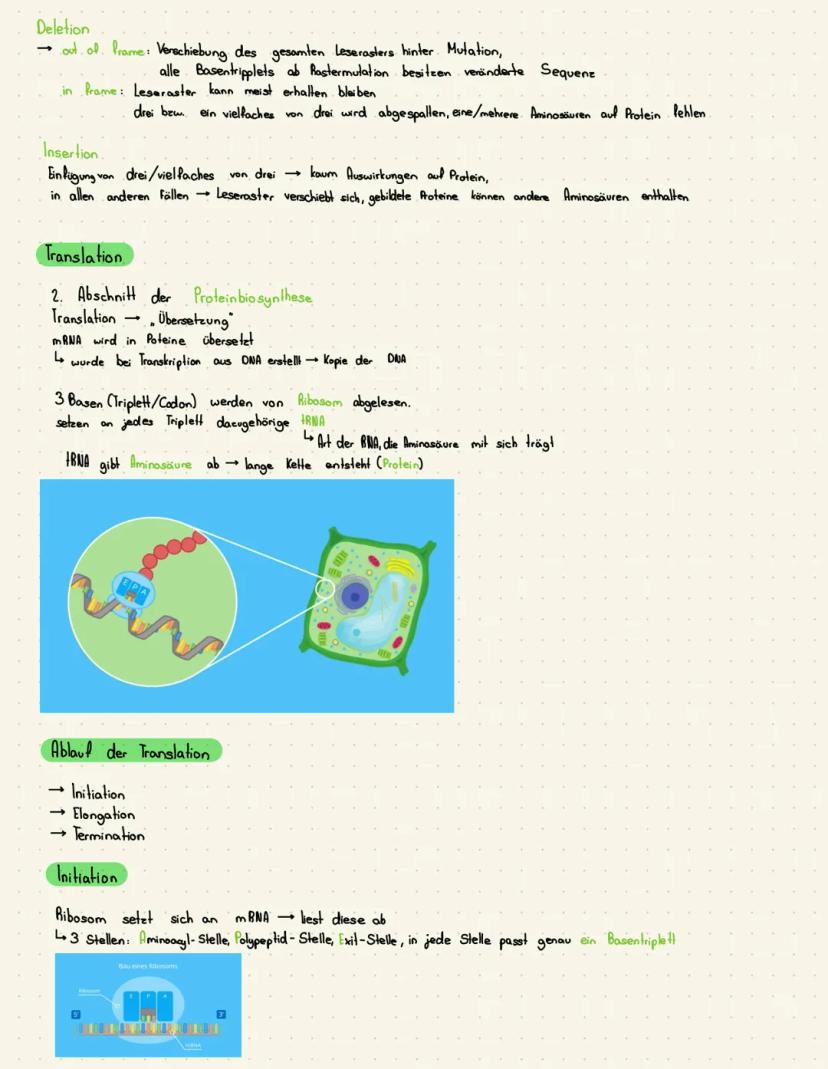 Deletion
→ out of frame: Verschiebung des gesamten Leserasters hinter Mutation,
alle Basentripplets ab Rastermutation besitzen veränderte Sequenz
in frame: Leseraster kann meist erhalten bleiben
drei bzw. ein vielfaches von drei wird abgespalten, eine/mehrere Aminosäuren auf Protein fehlen
Insertion
Einfügung von drei/vielfaches von drei → kaum Auswirkungen auf Protein,
in allen anderen Fällen → Leseraster verschiebt sich, gebildete Proteine können andere Aminosäuren enthalten
Translation
2. Abschnitt der Proteinbiosynthese
Translation → „Übersetzung"
mRNA wird in Poteine übersetzt
↳ wurde bei Transkription aus DNA erstellt → Kopie der DNA
3 Basen (Triplett/Codon) werden von Ribosom abgelesen.
setzen an jedes Triplett dazugehörige tRNA
↳ Art der RNA, die Aminosäure mit sich trägt
tRNA gibt Aminosäure ab → lange Kette entsteht (Protein)
E P A
Ablauf der Translation
→ Initiation
→ Elongation
→ Termination
Initiation
Ribosom setzt sich an mRNA → liest diese ab
↳ 3 Stellen: Aminoacyl-Stelle, Polypeptid-Stelle, Exit-Stelle, in jede Stelle passt genau ein Basentriplett
Bau eines Ribosoms
Ribosom
E P A
5' 3'
mRNA